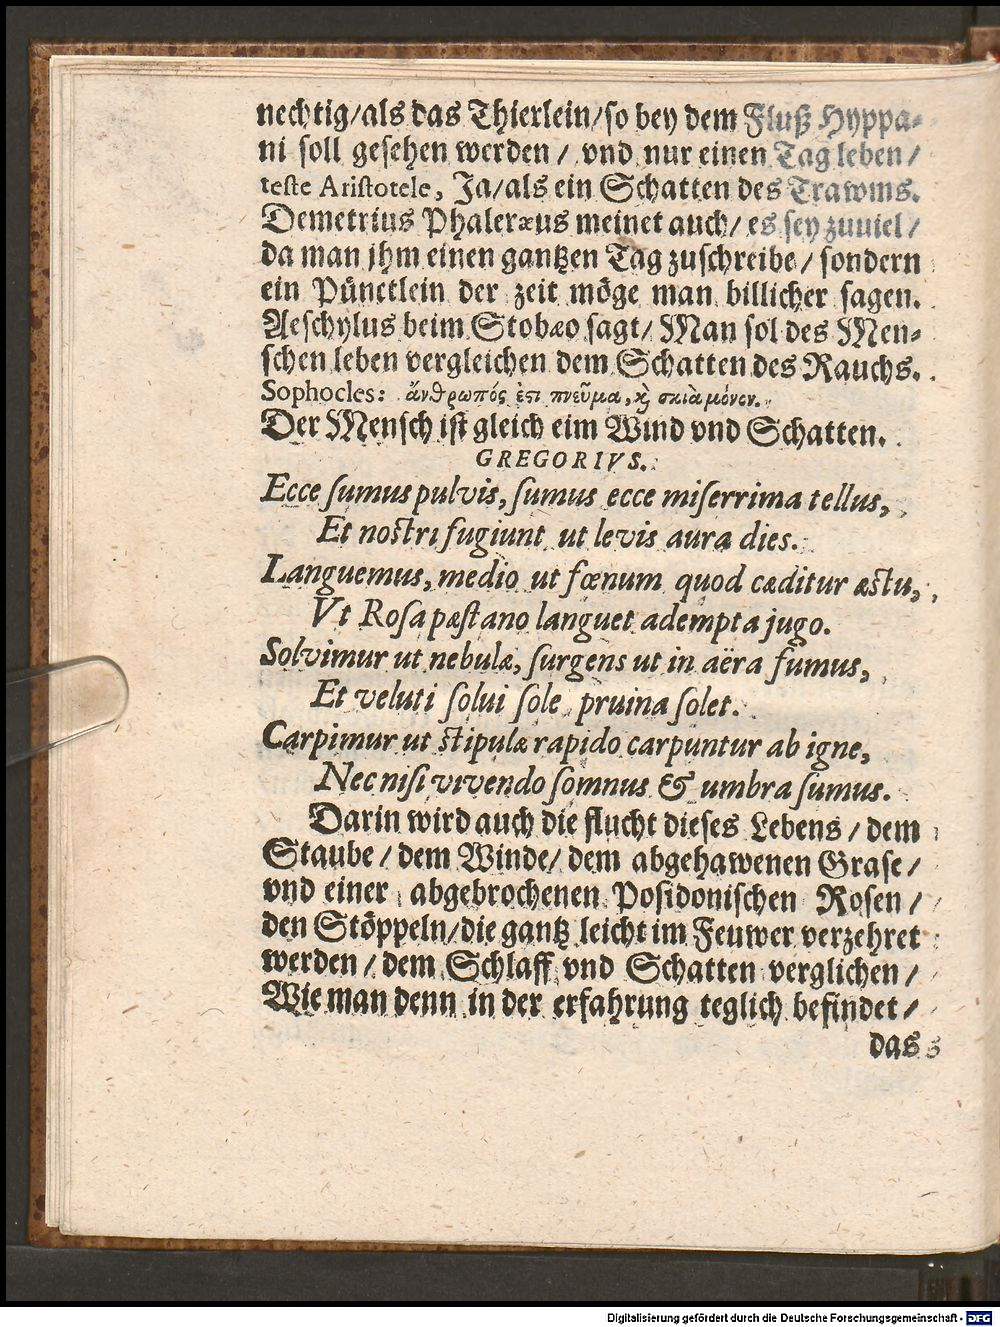 nechtig/als das Thierlein/so bey dem Fluß Hyppa-
ni soll gesehen werden / vnd nur einen Tag leben /
teste Aristotele, Ja/als ein Schatten des Trawms.
Demetrius Phaleræus meinet auch/ es sey zuuiel /
da man jhm einen gantzen Tag zuschreibe / sondern
ein Pünctlein der zeit möge man billicher sagen.
Aeschylus beim Stobæo sagt/ Man sol des Men-
schen leben vergleichen dem Schatten des Rauchs.
Sophocles: ἄνθρωπός ἐστι πνεῦμα, καὶ σκιὰ μόνον.
Der Mensch ist gleich eim Wind vnd Schatten.
GREGORIVS.
Ecce sumus pulvis, sumus ecce miserrima tellus,
Et nostri fugiunt ut levis aura dies.
Languemus, medio ut fœnum quod cæditur æstu,
Vt Rosa pæstano languet adempta jugo.
Solvimur ut nebulæ, surgens ut in aëra fumus,
Et veluti solui sole pruina solet.
Carpimur ut stipulæ rapido carpuntur ab igne,
Nec nisi vivendo somnus & umbra sumus.
Darin wird auch die flucht dieses Lebens / dem
Staube / dem Winde/ dem abgehawenen Grase /
vnd einer abgebrochenen Posidonischen Rosen /
den Stöppeln/die gantz leicht im Feuwer verzehret
werden / dem Schlaff vnd Schatten verglichen /
Wie man denn in der erfahrung teglich befindet /
das
Digitalisierung gefördert durch die Deutsche Forschungsgemeinschaft - DFG